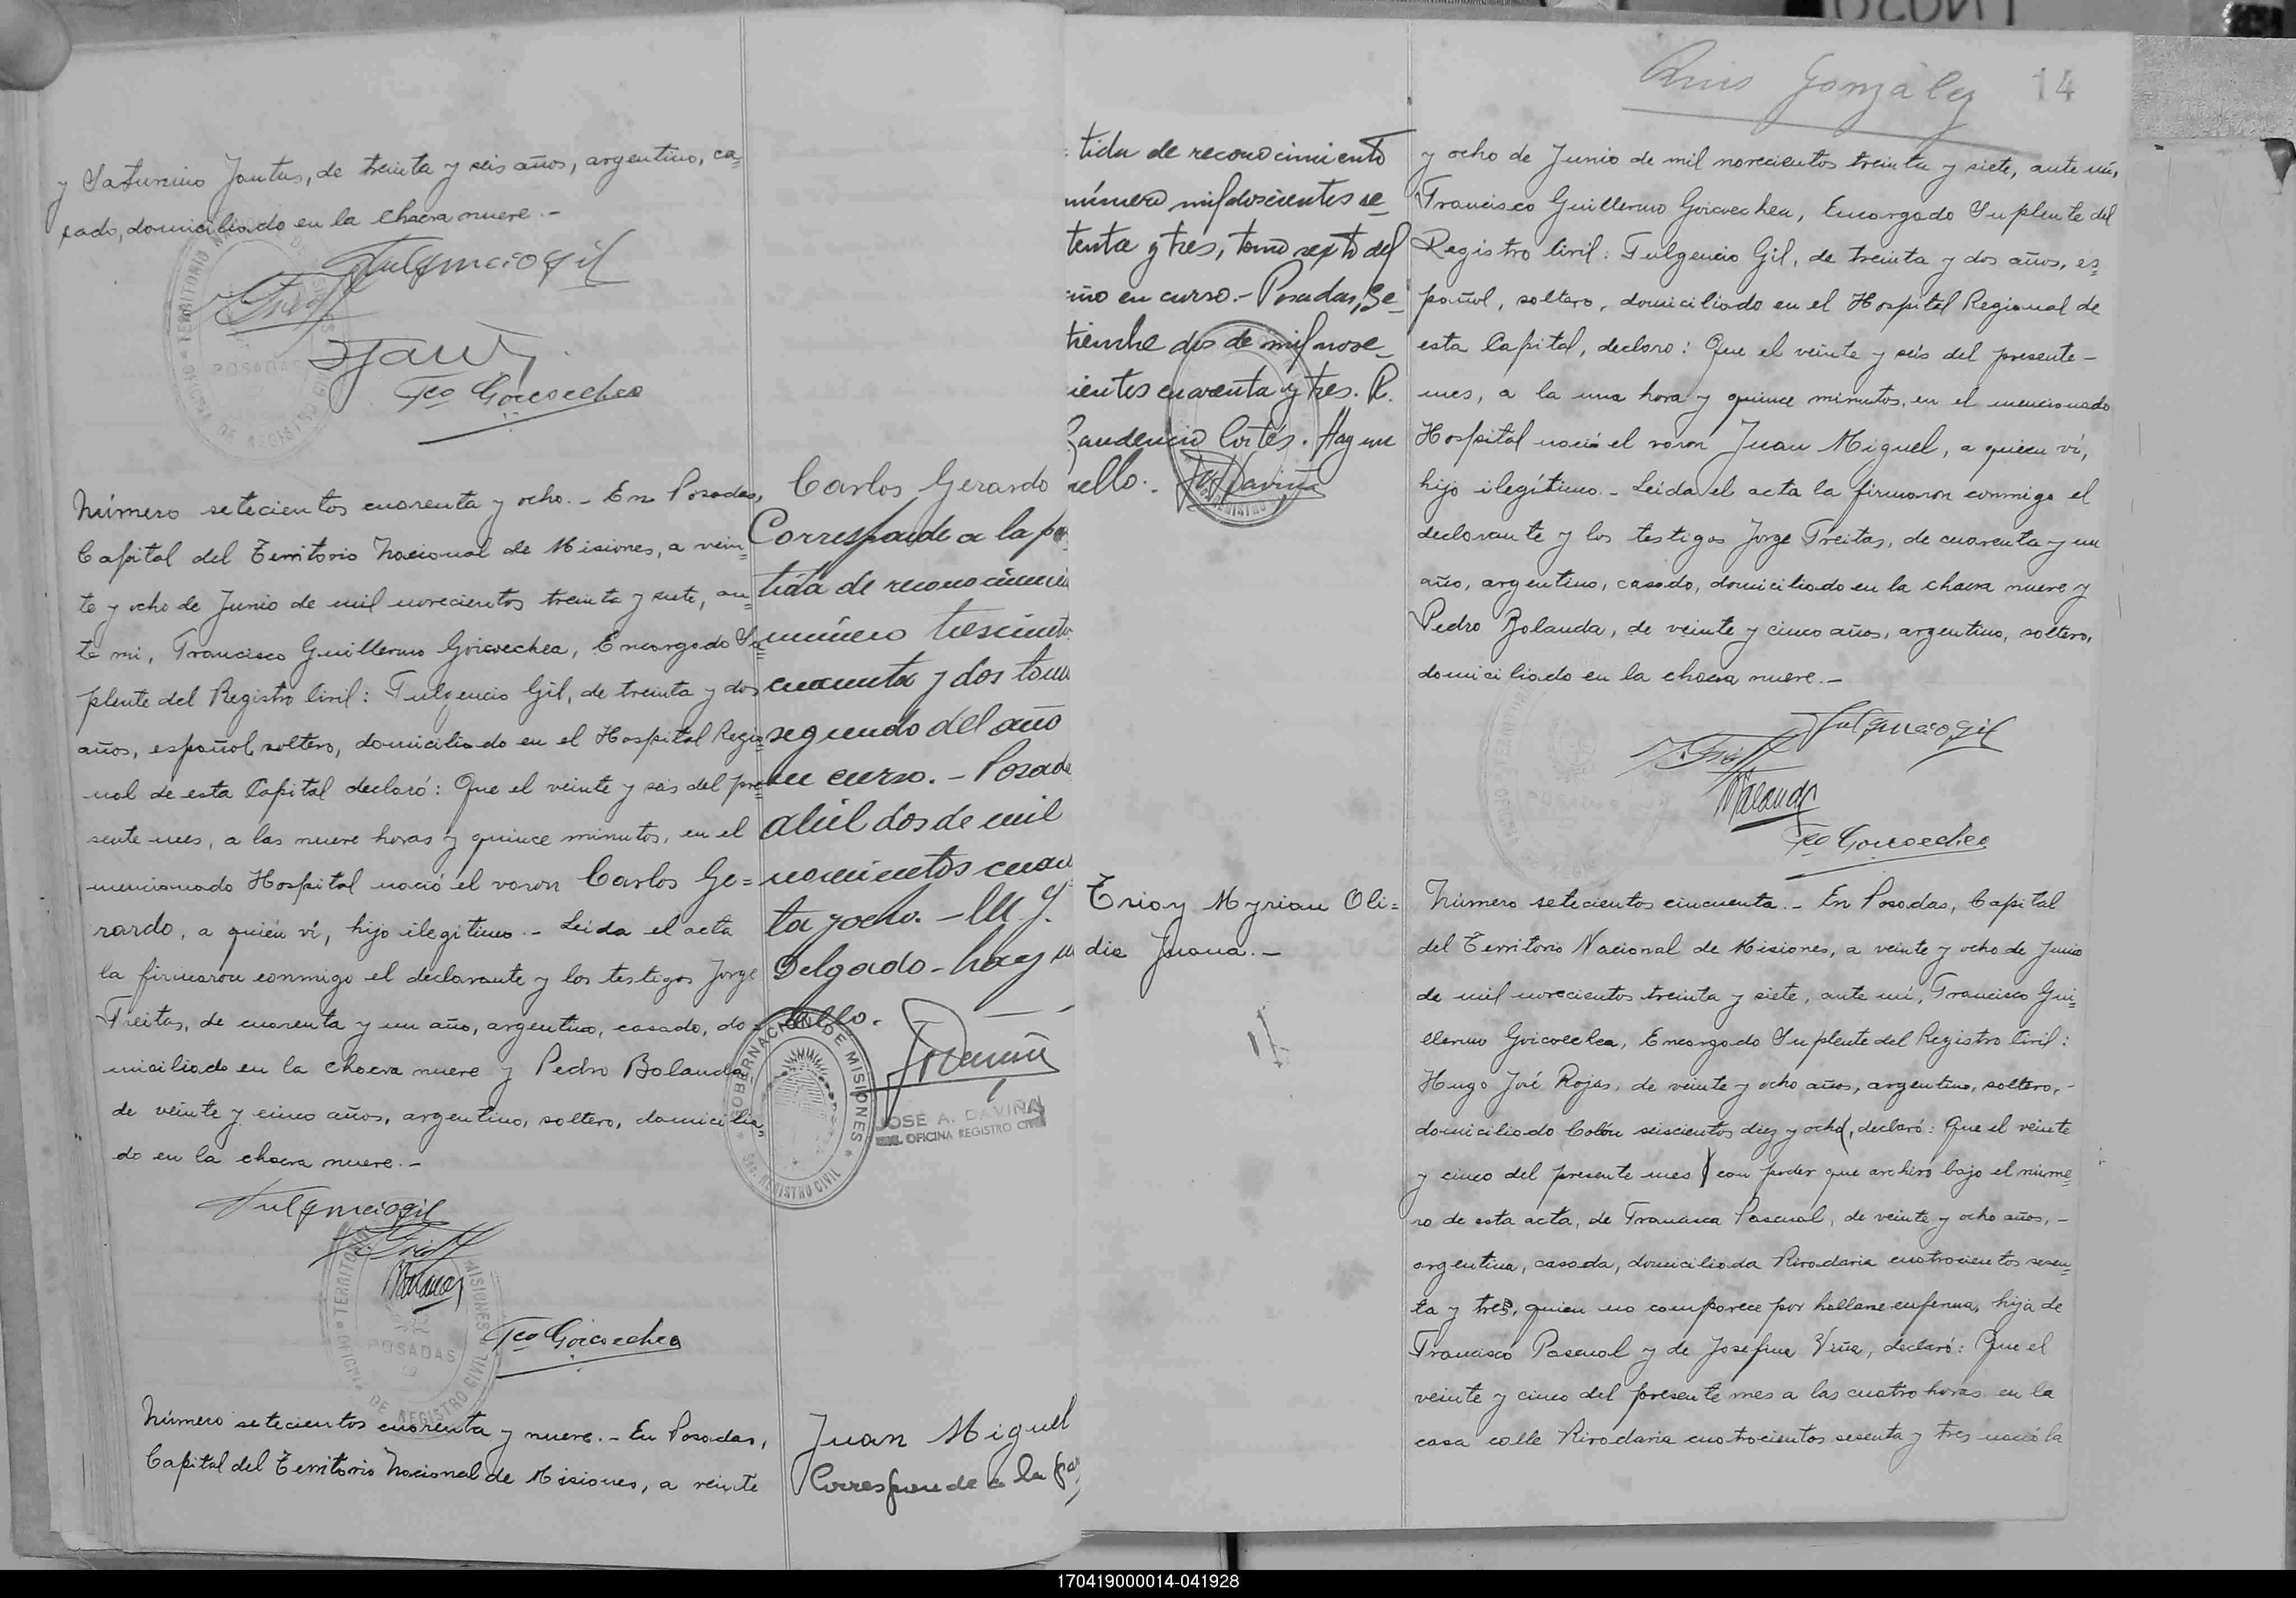 y Saturnino Jantus, de treinta y seis años, argentino, ca=
sado, domiciliado en la chacra nueve.-
Fulgencio Gil
Fco Goicoechea
Número setecientos cuarenta y ocho.- En Posadas,
Capital del Territorio Nacional de Misiones, a vein=
te y ocho de Junio de mil novecientos treinta y siete, an=
te mi, Francisco Guillermo Goicoechea, Encargado Su=
plente del Registro Civil: Fulgencio Gil, de treinta y dos
años, español, soltero, domiciliado en el Hospital Regio=
nal de esta Capital declaró: Que el veinte y seis del pre=
sente mes, a las nueve horas y quince minutos, en el
mencionado Hospital nació el varon Carlos Ge=
rardo, a quién ví, hijo ilegitimo.- Leida el acta
la firmaron conmigo el declarante y los testigos Jorge
Freitas, de cuarenta y un año, argentino, casado, do=
miciliado en la chacra nueve y Pedro Bolanda,
de veinte y cinco años, argentino, soltero, domicilia=
do en la chacra nueve.-
Fulgencio Gil
Fco Goicoechea
Número setecientos cuarenta y nueve.- En Posadas,
Capital del Territorio Nacional de Misiones, a veinte
Carlos Gerardo
Corresponde a la par
tida de reconocimien
número trescientos
cuarenta y dos tomo
segundo del año
en curso.- Posada
abril dos de mil
novecientos cuaren
ta y ocho.- M. J.
Delgado- hay un
sello.
GOBERNACION DE MISIONES
REGISTRO CIVIL
JOSE A. DAVIÑA
OFICINA REGISTRO CIVIL
Juan Miguel
Corresponde a la par
tida de reconocimiento
número mil doscientos se-
tenta y tres, tomo sexto del
año en curso.- Posadas, Se-
tiembre dos de mil nove-
cientos cuarenta y tres. R.
Gaudencio Cortés. Hay un
sello.
Triay Myrian Oli=
dia Juana.-
Ruis González 14
y ocho de Junio de mil novecientos treinta y siete, ante mí,
Francisco Guillermo Goicoechea, Encargado Suplente del
Registro Civil: Fulgencio Gil, de treinta y dos años, es=
pañol, soltero, domiciliado en el Hospital Regional de
esta Capital, declaro: Que el veinte y seis del presente-
mes, a la una hora y quince minutos, en el mencionado
Hospital nació el varon Juan Miguel, a quien ví,
hijo ilegítimo.- Leida el acta la firmaron conmigo el
declarante y los testigos Jorge Freitas, de cuarenta y un
año, argentino, casado, domiciliado en la chacra nueve y
Pedro Bolanda, de veinte y cinco años, argentino, soltero,
domiciliado en la chacra nueve.-
Fulgencio Gil
Fco Goicoechea
Número setecientos cincuenta.- En Posadas, Capital
del Territorio Nacional de Misiones, a veinte y ocho de Junio
de mil novecientos treinta y siete, ante mí, Francisco Gui=
llermo Goicoechea, Encargado Suplente del Registro Civil:
Hugo José Rojas, de veinte y ocho años, argentino, soltero,-
domiciliado Colón seiscientos diez y ocho(, declaró: Que el veinte
y cinco del presente mes) con poder que archivo bajo el núme=
ro de esta acta, de Francisca Pascual, de veinte y ocho años,-
argentina, casada, domiciliada Rivadavia cuatrocientos sesen=
ta y tres, quien no comparece por hallarse enferma, hija de
Francisco Pascual y de Josefina Viña, declaró: Que el
veinte y cinco del presente mes a las cuatro horas, en la
casa calle Rivadavia cuatrocientos sesenta y tres nació la
170419000014-041928